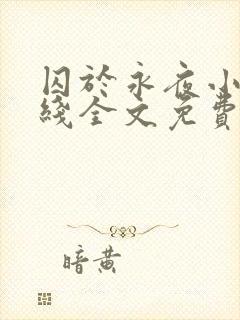 囚於永夜小
綫全文免費
暗黄